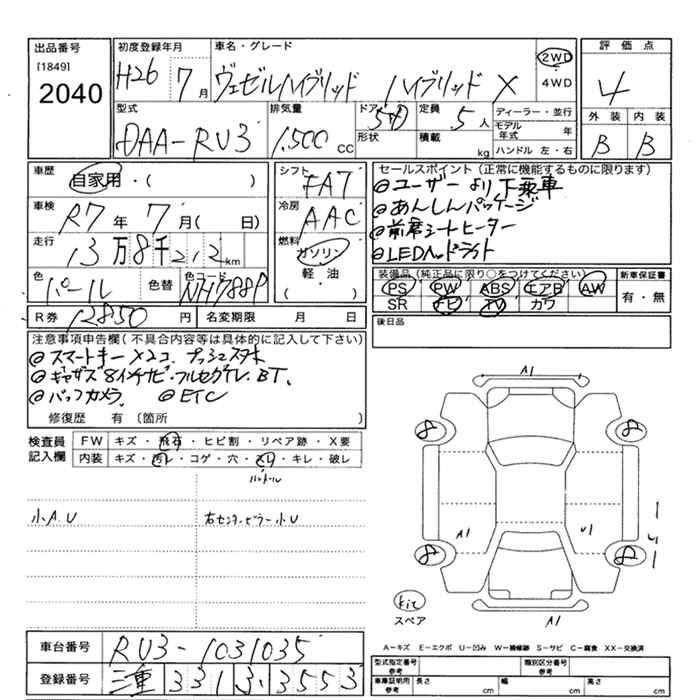 出品番号 初度登録年月 車名・グレード 評価点
[1849]
2040
H26 7月 ヴェゼルハイブリッド ハイブリッド X 2WD・4WD 4
型式 排気量 ドア 形状 定員 積載 ディーラー・並行 外装 内装
DAA-RU3 1,500 CC 5D 5人 kg モデル年式 年 B B
ハンドル 左・右
車歴 自家用・( ) シフト FAT セールスポイント(正常に機能するものに限ります)
@ユーザーより下取車
車検 R7年7月( 日) 冷房 AAC @あんしんパッケージ
@前席シートヒーター
走行 13万8千212km 燃料 ガソリン・軽・油 ( ) @LEDヘッドライト
色 パール 色替 色コード NH788P 装備品(純正品に限り○をつけてください) 新車保証書
PS PW ABS エアB AW 有・無
SR ナビ TV カワ
R券 12850円 名変期限 月 日 後日品
注意事項申告欄(不具合内容等は具体的に記入して下さい)
@スマートキー×2コ プッシュスタート
@ギャザズ8インチナビ・フルセグTV・BT、
@バックカメラ @ETC
修復歴 有 〔箇所 〕
検査員記入欄 FW キズ・飛石・ヒビ割・リペア跡・X要
内装 キズ・汚レ・コゲ・穴・スレ・キレ・破レ
ハンドル
小A.U 右センターピラー小U
A1
8 8
A1 U1
8 8
kit
スペア A1
A−キズ E−エクボ U−凹み W−補修跡 S−サビ C−腐食 XX−交換済
車台番号 RU3-1031035 型式指定番号 参考 類別区分番号 参考
登録番号 三重 331 ・3553 車庫証明用 参考 長さ cm 幅 cm 高さ cm